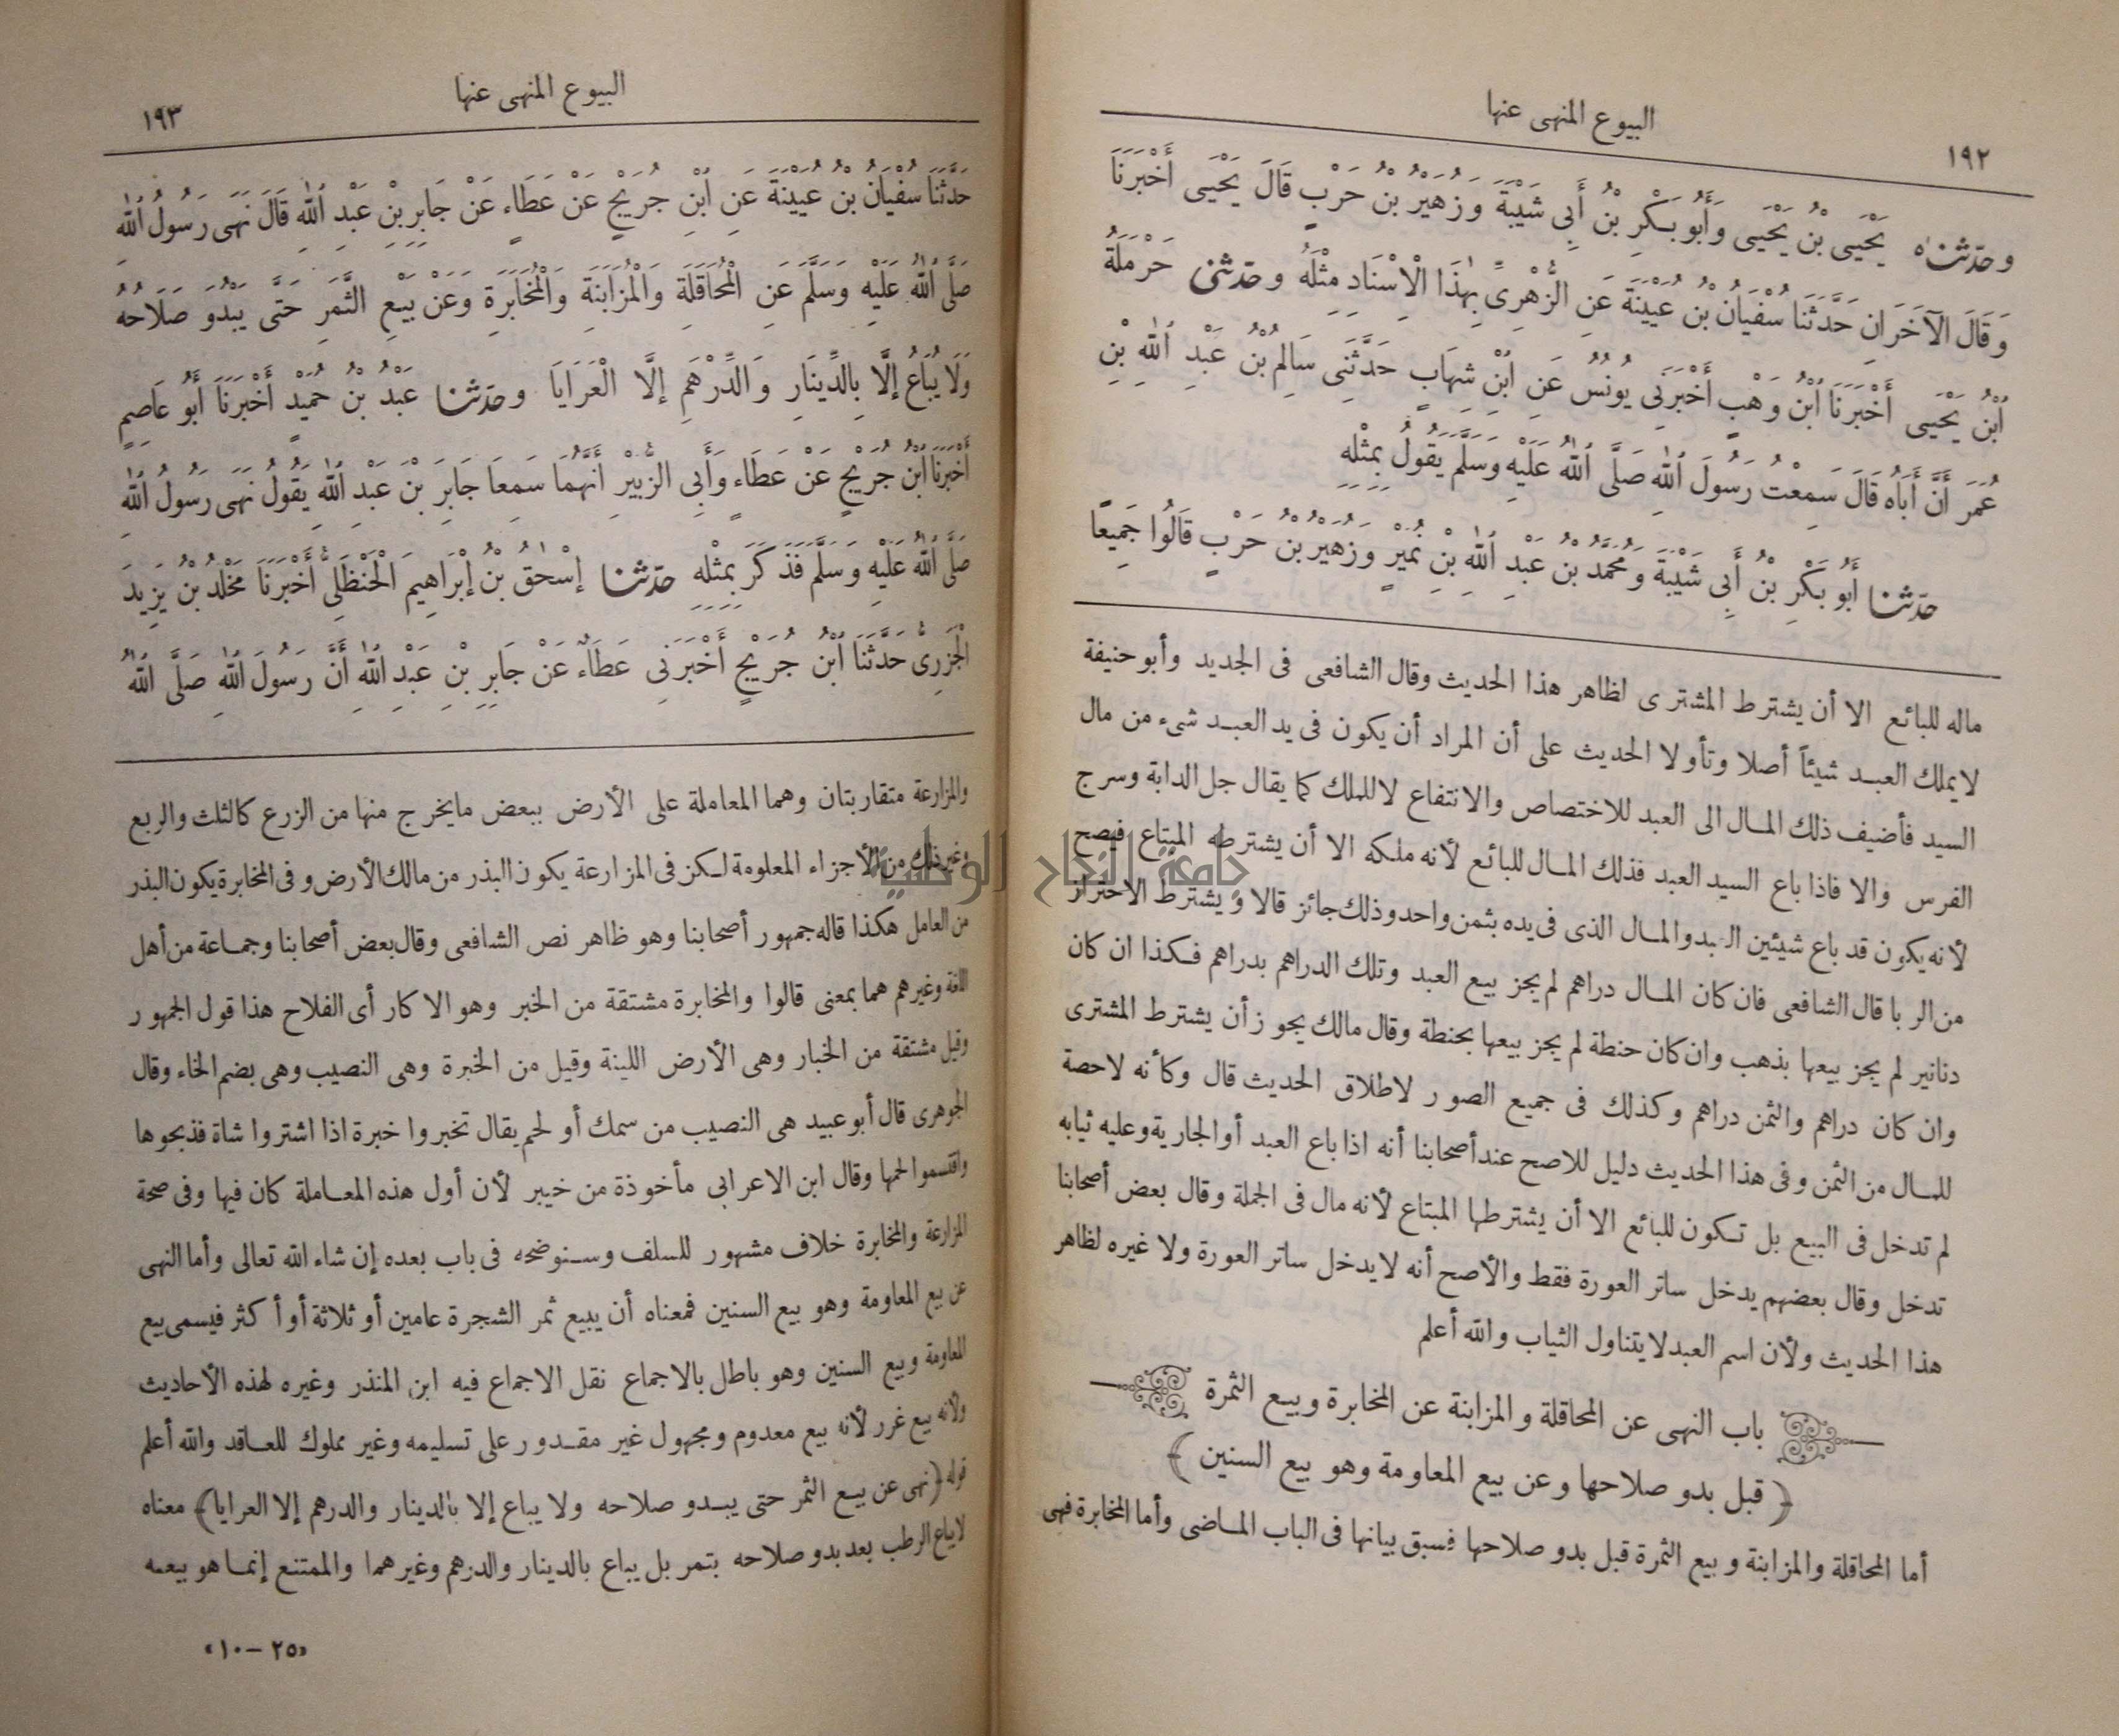 البيوع المنهى عنها
١٩٢
وحدثناه يَحْيَى بْنُ يَحْيَى وَأَبُو بَكْرِ بْنُ أَبِى شَيْبَةَ وَزُهَيْرُ بْنُ حَرْبٍ قَالَ يَحْيَى أَخْبَرَنَا
وَقَالَ الْآخَرَانِ حَدَّثَنَا سُفْيَانُ بْنُ عُيَيْنَةَ عَنِ الزُّهْرِىِّ بِهٰذَا الْإِسْنَادِ مِثْلَهُ وحدثنى حَرْمَلَةُ
ابْنُ يَحْيَى أَخْبَرَنَا ابْنُ وَهْبٍ أَخْبَرَنِى يُونُسُ عَنِ ابْنِ شِهَابٍ حَدَّثَنِى سَالِمُ بْنُ عَبْدِ اللّٰهِ بْنِ
عُمَرَ أَنَّ أَبَاهُ قَالَ سَمِعْتُ رَسُولَ اللّٰهِ صَلَّى اللّٰهُ عَلَيْهِ وَسَلَّمَ يَقُولُ بِمِثْلِهِ
حدثنا أَبُو بَكْرِ بْنُ أَبِى شَيْبَةَ وَمُحَمَّدُ بْنُ عَبْدِ اللّٰهِ بْنِ نُمَيْرٍ وَزُهَيْرُ بْنُ حَرْبٍ قَالُوا جَمِيعًا
ماله للبائع الا أن يشترط المشترى لظاهر هذا الحديث وقال الشافعى فى الجديد وأبو حنيفة
لا يملك العبد شيئاً أصلا وتأولا الحديث على أن المراد أن يكون فى يد العبد شىء من مال
السيد فأضيف ذلك المال الى العبد للاختصاص والانتفاع لا للملك كما يقال جل الدابة وسرج
الفرس والا فاذا باع السيد العبد فذلك المال للبائع لأنه ملكه الا أن يشترطه المبتاع فيصح
لأنه يكون قد باع شيئين العبد والمال الذى فى يده بثمن واحد وذلك جائز قالا ويشترط الاحتراز
من الربا قال الشافعى فان كان المال دراهم لم يجز بيع العبد وتلك الدراهم بدراهم فكذا ان كان
دنانير لم يجز بيعها بذهب وان كان حنطة لم يجز بيعها بحنطة وقال مالك يجوز أن يشترط المشترى
وان كان دراهم والثمن دراهم وكذلك فى جميع الصور لاطلاق الحديث قال وكأنه لا حصة
للمال من الثمن وفى هذا الحديث دليل للاصح عند أصحابنا أنه اذا باع العبد أو الجارية وعليه ثيابه
لم تدخل فى البيع بل تكون للبائع الا أن يشترطها المبتاع لأنه مال فى الجملة وقال بعض أصحابنا
تدخل وقال بعضهم يدخل ساتر العورة فقط والأصح أنه لا يدخل ساتر العورة ولا غيره لظاهر
هذا الحديث ولأن اسم العبد لا يتناول الثياب والله أعلم
باب النهى عن المحاقلة والمزابنة عن المخابرة وبيع الثمرة
﴿ قبل بدو صلاحها وعن بيع المعاومة وهو بيع السنين ﴾
أما المحاقلة والمزابنة وبيع الثمرة قبل بدو صلاحها فسبق بيانها فى الباب الماضى وأما المخابرة فهى
البيوع المنهى عنها
١٩٣
حَدَّثَنَا سُفْيَانُ بْنُ عُيَيْنَةَ عَنِ ابْنِ جُرَيْجٍ عَنْ عَطَاءٍ عَنْ جَابِرِ بْنِ عَبْدِ اللّٰهِ قَالَ نَهَى رَسُولُ اللّٰهِ
صَلَّى اللّٰهُ عَلَيْهِ وَسَلَّمَ عَنِ الْمُحَاقَلَةِ وَالْمُزَابَنَةِ وَالْمُخَابَرَةِ وَعَنْ بَيْعِ الثَّمَرِ حَتَّى يَبْدُوَ صَلَاحُهُ
وَلَا يُبَاعُ إِلَّا بِالدِّينَارِ وَالدِّرْهَمِ إِلَّا الْعَرَايَا وحدثنا عَبْدُ بْنُ حُمَيْدٍ أَخْبَرَنَا أَبُو عَاصِمٍ
أَخْبَرَنَا ابْنُ جُرَيْجٍ عَنْ عَطَاءٍ وَأَبِى الزُّبَيْرِ أَنَّهُمَا سَمِعَا جَابِرَ بْنَ عَبْدِ اللّٰهِ يَقُولُ نَهَى رَسُولُ اللّٰهِ
صَلَّى اللّٰهُ عَلَيْهِ وَسَلَّمَ فَذَكَرَ بِمِثْلِهِ حدثنا إِسْحٰقُ بْنُ إِبْرَاهِيمَ الْحَنْظَلِىُّ أَخْبَرَنَا مَخْلَدُ بْنُ يَزِيدَ
الْجَزَرِىُّ حَدَّثَنَا ابْنُ جُرَيْجٍ أَخْبَرَنِى عَطَاءٌ عَنْ جَابِرِ بْنِ عَبْدِ اللّٰهِ أَنَّ رَسُولَ اللّٰهِ صَلَّى اللّٰهُ
والمزارعة متقاربتان وهما المعاملة على الأرض ببعض ما يخرج منها من الزرع كالثلث والربع
وغير ذلك من الأجزاء المعلومة لكن فى المزارعة يكون البذر من مالك الأرض وفى المخابرة يكون البذر
من العامل هكذا قاله جمهور أصحابنا وهو ظاهر نص الشافعى وقال بعض أصحابنا وجماعة من أهل
اللغة وغيرهم هما بمعنى قالوا والمخابرة مشتقة من الخبر وهو الاكار أى الفلاح هذا قول الجمهور
وقيل مشتقة من الخبار وهى الأرض اللينة وقيل من الخبرة وهى النصيب وهى بضم الخاء وقال
الجوهرى قال أبو عبيد هى النصيب من سمك أو لحم يقال تخبروا خبرة اذا اشتروا شاة فذبحوها
واقتسموا لحمها وقال ابن الاعرابى مأخوذة من خيبر لأن أول هذه المعاملة كان فيها وفى صحة
المزارعة والمخابرة خلاف مشهور للسلف وسنوضحه فى باب بعده إن شاء الله تعالى وأما النهى
عن بيع المعاومة وهو بيع السنين فمعناه أن يبيع ثمر الشجرة عامين أو ثلاثة أو أكثر فيسمى بيع
المعاومة وبيع السنين وهو باطل بالاجماع نقل الاجماع فيه ابن المنذر وغيره لهذه الأحاديث
ولأنه بيع غرر لأنه بيع معدوم ومجهول غير مقدور على تسليمه وغير مملوك للعاقد والله أعلم
قوله ﴿نهى عن بيع الثمر حتى يبدو صلاحه ولا يباع إلا بالدينار والدرهم إلا العرايا﴾ معناه
لا يباع الرطب بعد بدو صلاحه بتمر بل يباع بالدينار والدرهم وغيرهما والممتنع إنما هو بيعه
«٢٥ — ١٠»
جامعة النجاح الوطنية